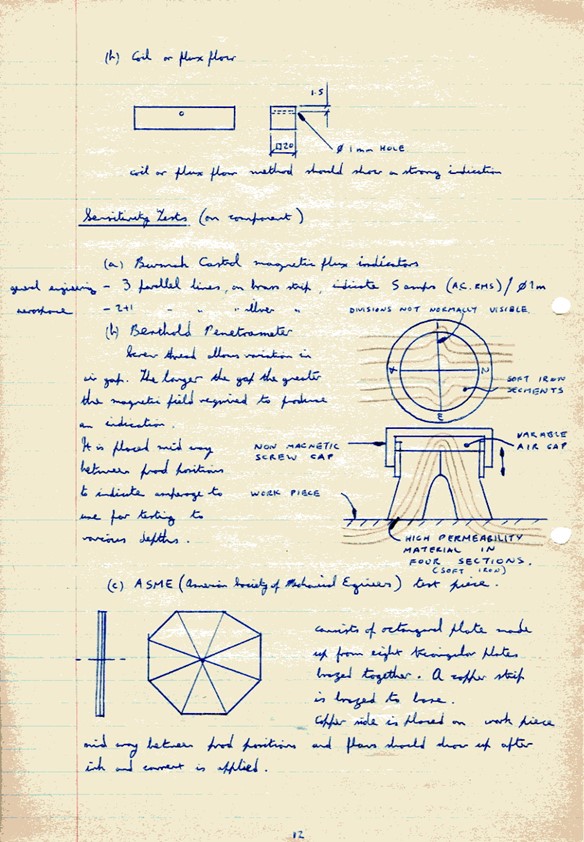 (h) Coil or flux flow
1.5
□20
Ø 1mm HOLE
coil or flux flow method should show a strong indication
Sensitivity Tests (on component)
(a) Burmah Castrol magnetic flux indicators
general engineering - 3 parallel lines, on brass strip, indicate 5 amps (A.C. RMS) / Ø 1m
aerospace - 2+1 " " " silver "
(b) Berthold Penetrameter
DIVISIONS NOT NORMALLY VISIBLE.
Screw thread allows variation in
air gap. The larger the gap the greater
the magnetic field required to produce
an indication.
It is placed mid way
between prod positions
to indicate amperage to
use for testing to
various depths.
1
2
3
4
SOFT IRON
SEGMENTS
NON MAGNETIC
SCREW CAP
VARABLE
AIR GAP
WORK PIECE
HIGH PERMEABILITY
MATERIAL IN
FOUR SECTIONS.
(SOFT IRON)
(c) ASME (American Society of Mechanical Engineers) test piece.
consists of octangonal plate made
up from eight triangular plates
brazed together. A copper strip
is brazed to base.
Copper side is placed on work piece
mid way between prod positions and flaws should show up after
ink and current is applied.
12